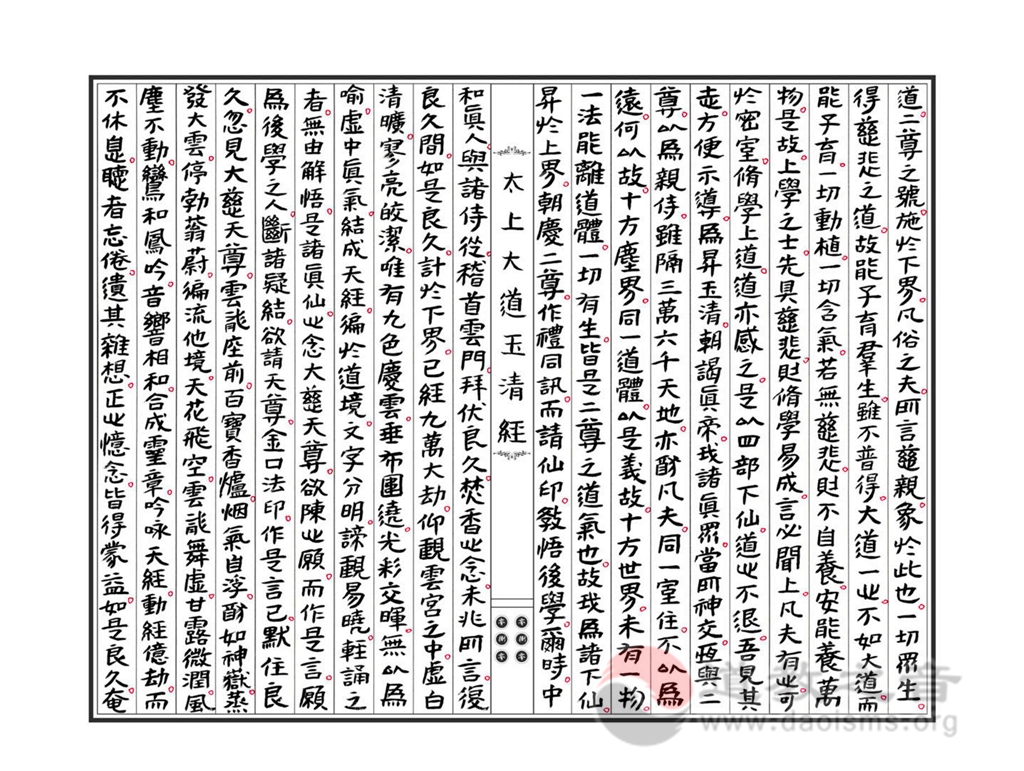 道二尊之號施扵下界凡俗之夫所言慈親象扵此也一切眾生
得慈悲之道故能子育羣生雖不普得大道一也不如大道而
能子育一切動植一切含氣若無慈悲則不自養安能養萬
物是故上學之士先具慈悲則脩學易成言必聞上凡夫有此可
扵密室脩學上道道亦感之是以四部下仙道此不退吾見其
志方便示導爲昇玉清朝謁真帝我諸真眾當所神交與二
尊以爲親侍雖隔三萬六千天地亦酬凡夫同一室住不以爲
遠何以故十方塵界同一道體以是義故十方世界未有一物
一法能離道體一切有生皆是二尊之道氣也故我爲諸下仙
昇扵上界朝慶二尊作禮同訊而請仙印教悟後學爾時中
太上大道玉清經
和真人與諸侍從稽首雲門拜伏良久焚香此念未兆所言復
良久間如是良久計扵下界已經九萬大劫仰觀雲宮之中虛白
清曠寥亮皎潔唯有九色慶雲垂布圍遶光彩交暉無以爲
喻虛中真氣結成天經徧扵道境文字分明諦觀易曉輕誦之
者無由解悟是諸真仙此念大慈天尊欲陳此願而作是言願
爲後學之人斷諸疑結欲請天尊金口法印作是言已默住良
久忽見大慈天尊雲龍座前百寶香爐烟氣自浮酬如神嶽蒸
發大雲停勃蓊蔚徧流他境天花飛空雲龍舞虛甘露微潤風
塵不動鸞和鳳吟音響相和合成靈章吟咏天經動經億劫而
不休息聽者忘倦遺其雜想正此憶念皆得蒙益如是良久奄
道教之音
www.daoisms.org